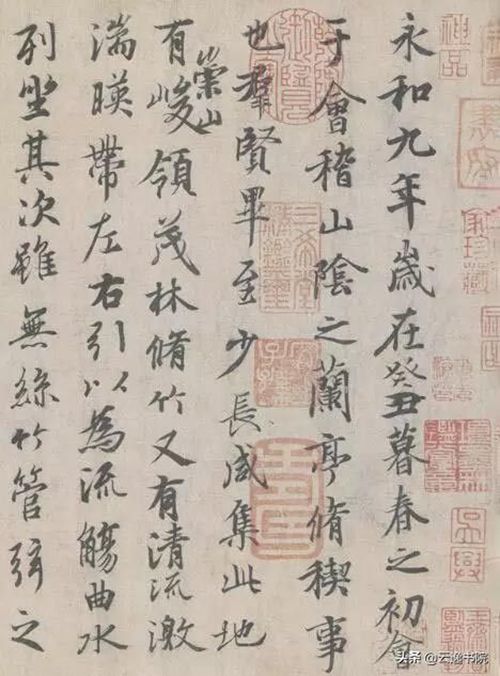 永和九年歲在癸丑暮春之初會
于會稽山陰之蘭亭脩稧事
也羣賢畢至少長咸集此地
有崇山峻領茂林脩竹又有清流激
湍暎帶左右引以為流觴曲水
列坐其次雖無絲竹管弦之
神品
头条 @云逸书院